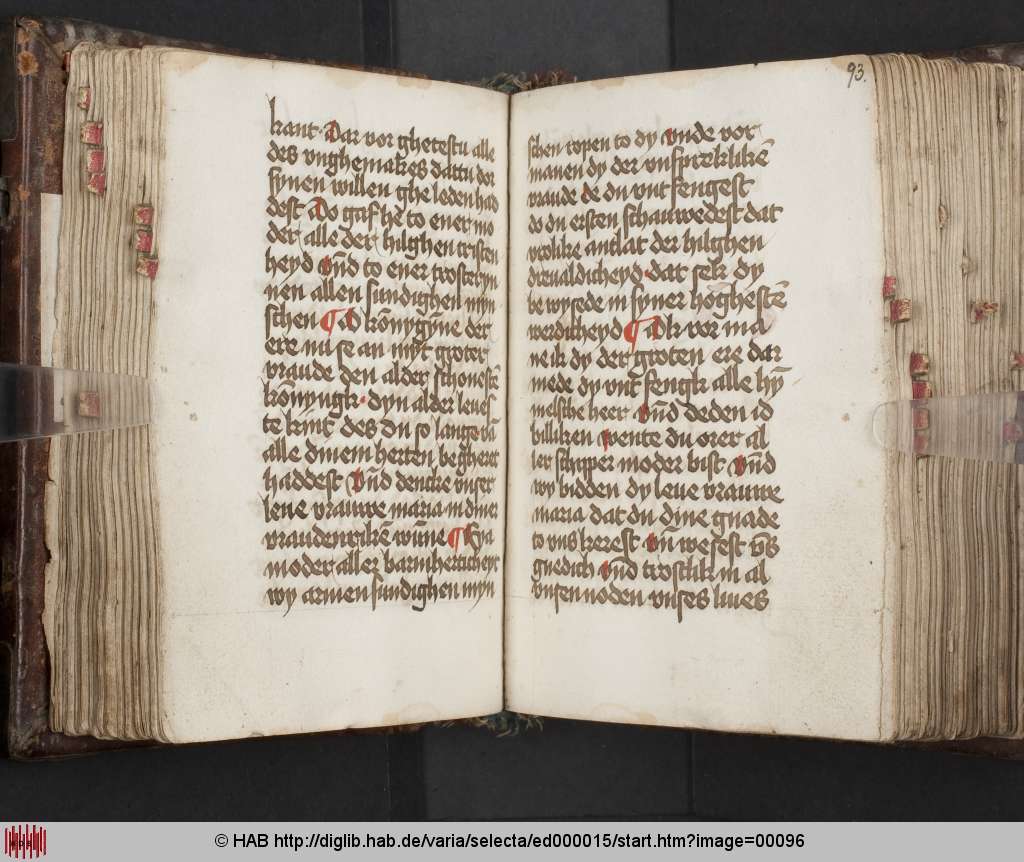 kant · Dar vor ghetestu alle
des vnghemakes dattu dor
synen willen ghe leden had
dest Do gaf he to ener mo
der alle der hilghen cristen
heyd vnd to ener trosteryn
nen allen sundighen myn
schen ¶ O kônygȳne der
ere nu se an myt groter
vraude den alder schonestē
kônynigk · dyn alder leues
te kint des du so lange vā
alle dinem herten begheret
haddest vnd dencke vnser
leue vrauwe maria in diner
vraudenrikē wūne ¶ Eya
moder aller barmherticheyt
wy armen sundighen myn
93.
schen ropen to dy vnde vor
manen dy der vnsprekliken
vraude de du vntfengest
do du ersten schauwedest dat
vrolike antlat der hilghen
dreualdicheyd · dat sek dy
be wysede in syner hôghestē
werdicheyd ¶ Ok vor ma
ne ik dy der groten ere dar
mede dy vnt fengk alle hȳ
melsche heer vnd deden id
billiken wente du orer al
ler schipper moder bist vnd
wy bidden dy leue vrauwe
maria dat du dyne gnade
to vns kerest vn wesest vs
gnedich vnd trostlik in al
vnsen noden vnses liues
© HAB http://diglib.hab.de/varia/selecta/ed000015/start.htm?image=00096